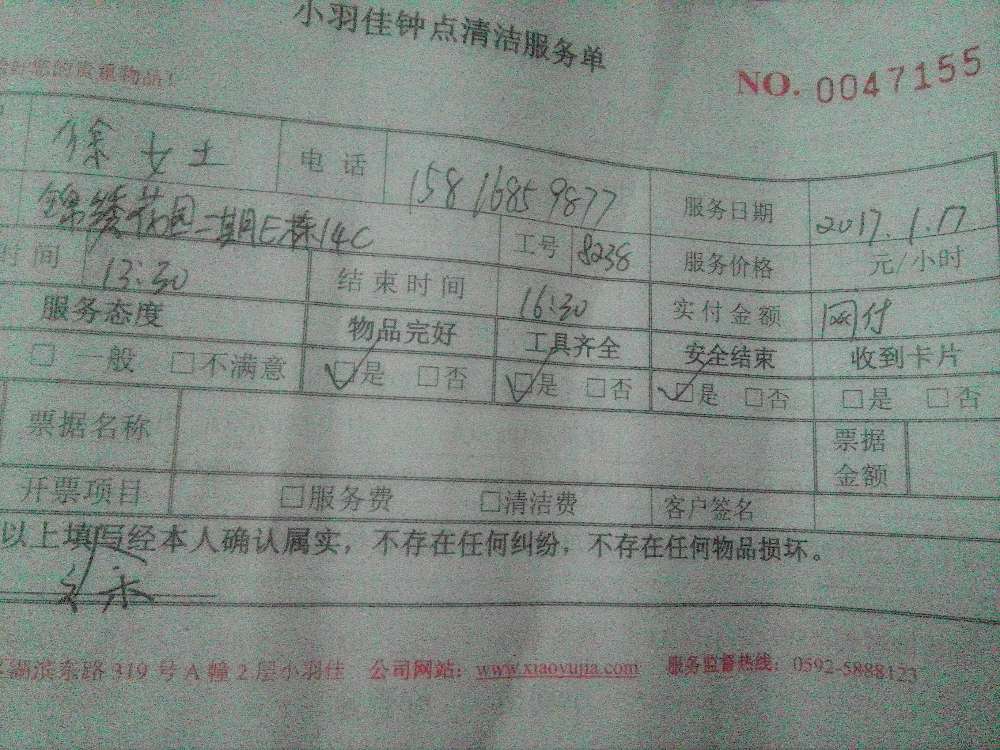 小羽佳钟点清洁服务单
您的贵重物品！
NO. 0047155
徐女士 电话 158 1685 9877 服务日期 2017.1.17
锦绣花园二期E栋14C 工号 8238 服务价格 元/小时
时间 13:30 结束时间 16:30 实付金额 网付
服务态度 物品完好 工具齐全 安全结束 收到卡片
□一般 □不满意 ☑是 □否 ☑是 □否 ☑是 □否 □是 □否
票据名称 票据金额
开票项目 □服务费 □清洁费 客户签名
以上填写经本人确认属实，不存在任何纠纷，不存在任何物品损坏。
湖滨东路319号A幢2层小羽佳 公司网站：www.xiaoyujia.com 服务监督热线：0592-5888123